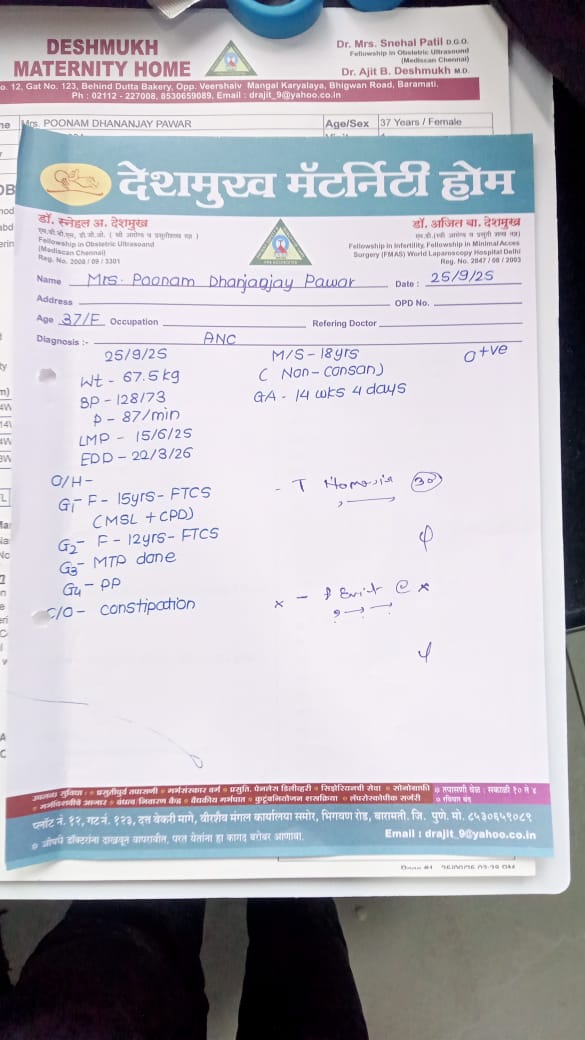 DESHMUKH
MATERNITY HOME
Dr. Mrs. Snehal Patil D.G.O.
Fellowship in Obstetric Ultrasound
(Mediscan Chennai)
Dr. Ajit B. Deshmukh M.D.
o. 12, Gat No. 123, Behind Dutta Bakery, Opp. Veershaiv Mangal Karyalaya, Bhigwan Road, Baramati.
Ph : 02112 - 227008, 8530659089, Email : drajit_9@yahoo.co.in
Mrs. POONAM DHANANJAY PAWAR
Age/Sex 37 Years / Female
देशमुख मॅटर्निटी होम
डॉ. स्नेहल अ. देशमुख
Fellowship in Obstetric Ultrasound
(Mediscan Chennai)
Reg. No. 2008 / 09 / 3301
डॉ. अजित बा. देशमुख
Fellowship in Infertility, Fellowship in Minimal Acces
Surgery (FMAS) World Laparoscopy Hospital Delhi
Reg. No. 2847 / 08 / 2003
Name Mrs. Poonam Dhanjagjay Pawar Date : 25/9/25
Address OPD No.
Age 37/F Occupation Refering Doctor
Diagnosis :- ANC
25/9/25 M/S - 18yrs O+ve
Wt - 67.5 kg ( Non - consan)
BP - 128/73 GA - 14 wks 4 days
P - 87/min
LMP - 15/6/25
EDD - 22/3/26
O/H -
G1- F - 15yrs - FTCS - T 30
(MSL + CPD)
G2- F - 12yrs - FTCS
G3- MTP done
G4 - PP
C/O - constipation
उपलब्ध सुविधा : प्रसुतीपूर्व तपासणी • गर्भसंस्कार वर्ग • प्रसुति. पेनलेस डिलीव्हरी • सिझेरियनची सेवा • सोनोग्राफी
• तपासणी वेळ : सकाळी १० ते ४
• गर्भपिशवीचे आजार • वंध्यत्व निवारण केंद्र • वैद्यकीय गर्भपात • कुटुंबनियोजन शस्त्रक्रिया • लॅपरोस्कोपीक सर्जरी
• रविवार बंद
प्लॉट नं. १२, गट नं. १२३, दत्त बेकरी मागे, वीरशैव मंगल कार्यालया समोर, भिगवण रोड, बारामती. जि. पुणे. मो. ८५३०६५९०८९
• औषधे डॉक्टरांना दाखवून वापरावीत, परत येतांना हा कागद बरोबर आणावा.
Email : drajit_9@yahoo.co.in